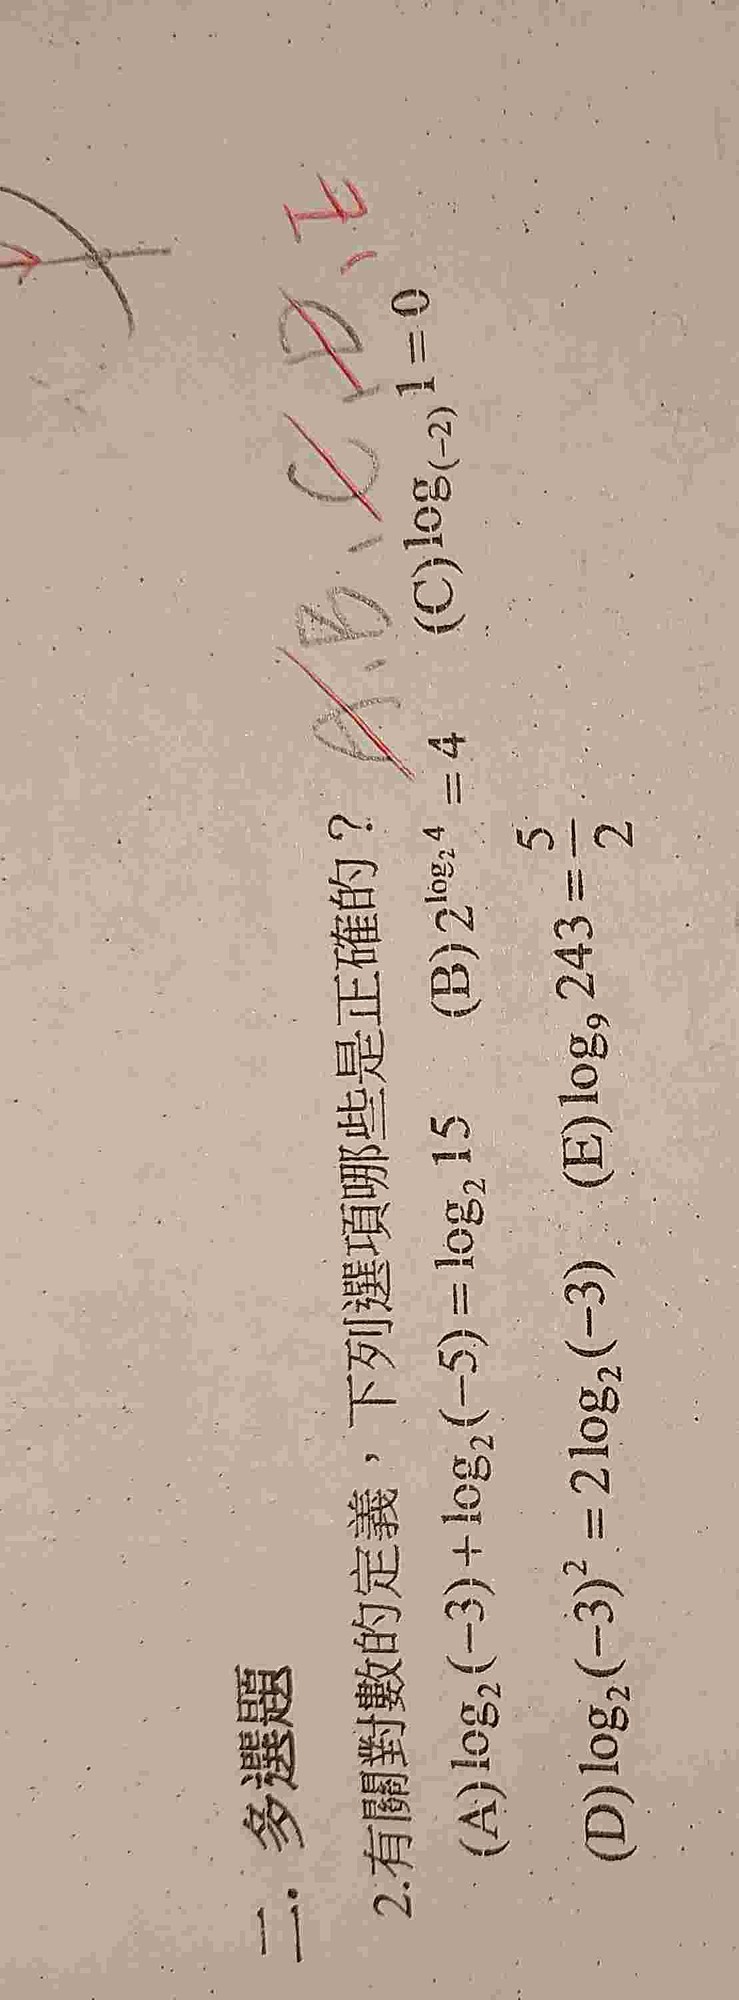 二. 多選題
A、B、C、D、E
2.有關對數的定義，下列選項哪些是正確的？
(A) log₂(−3)+log₂(−5)=log₂15 (B) 2^{log₂4}=4 (C) log₍₋₂₎1=0
(D) log₂(−3)²=2log₂(−3) (E) log₉243=5/2